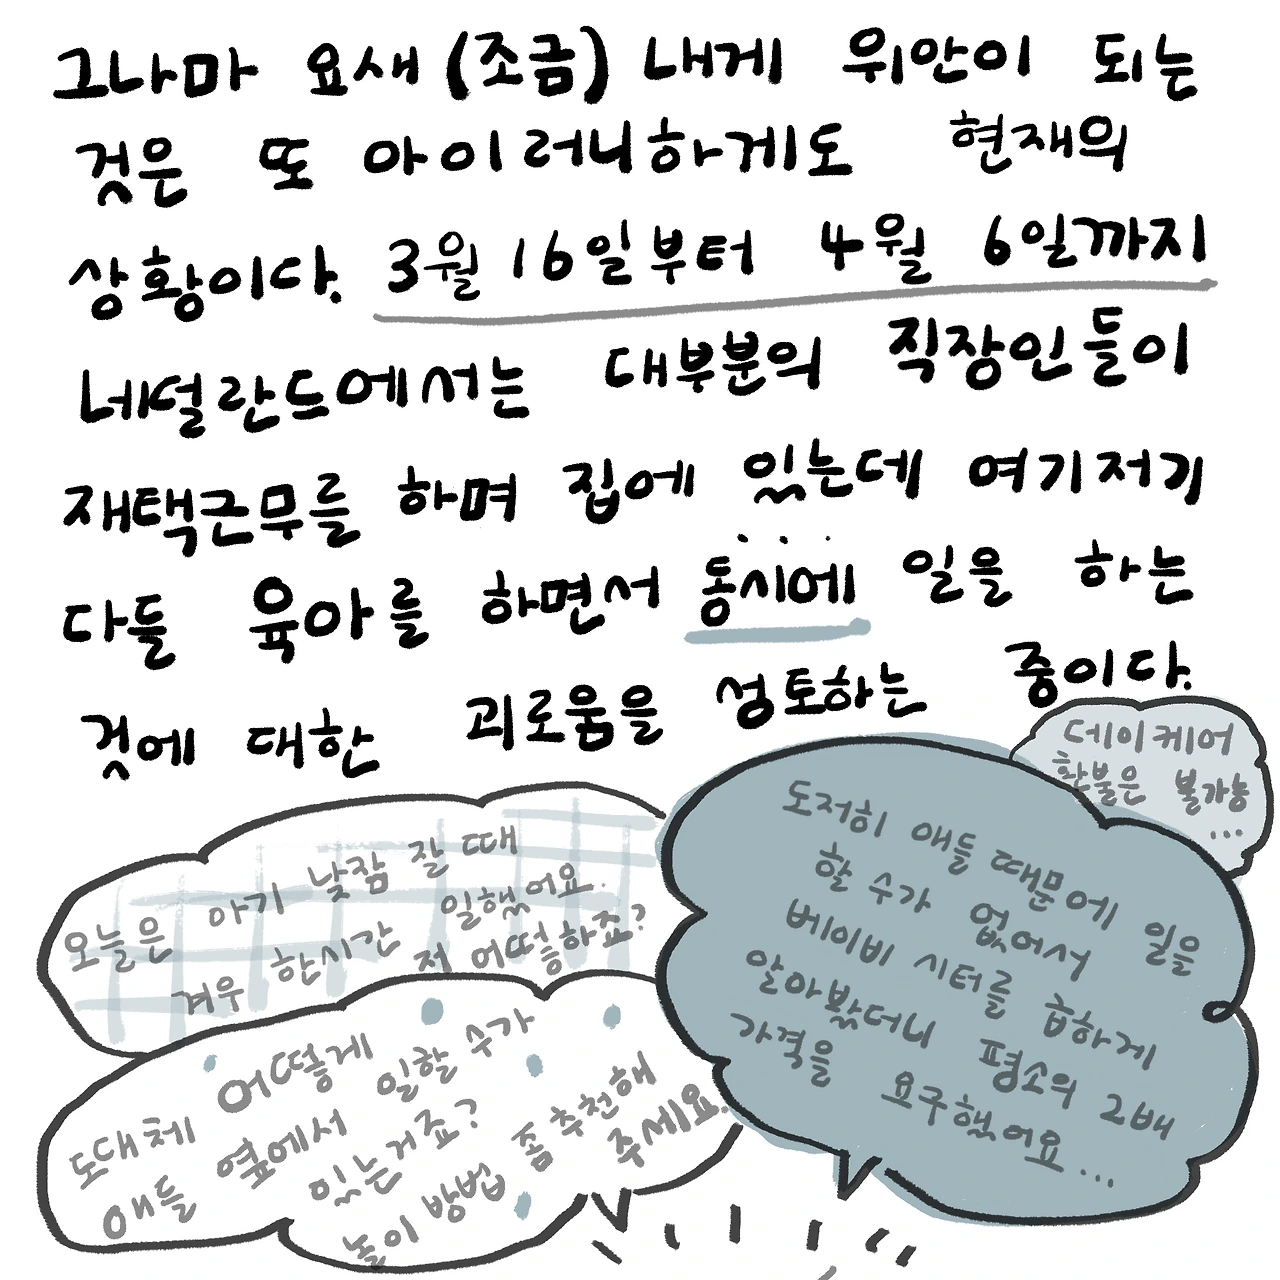 그나마 요새 (조금) 내게 위안이 되는
것은 또 아이러니하게도 현재의
상황이다. 3월 16일부터 4월 6일까지
네덜란드에서는 대부분의 직장인들이
재택근무를 하며 집에 있는데 여기저기
다들 육아를 하면서 동시에 일을 하는
것에 대한 괴로움을 성토하는 중이다.
데이케어
환불은 불가능
...
도저히 애들 때문에 일을
할 수가 없어서
베이비 시터를 급하게
알아봤더니 평소의 2배
가격을 요구했어요...
오늘은 아기 낮잠 잘 때
겨우 한시간 일했어요.
저 어떻하죠?
도대체 어떻게 일할 수가
애들 옆에서 있는거죠?
놀이 방법 좀 추천해
주세요.